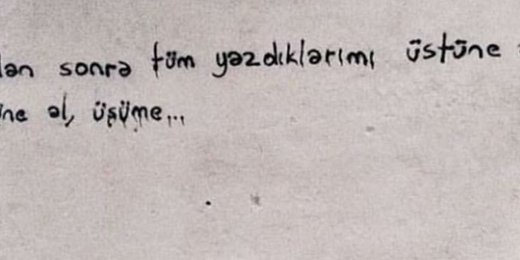 sonra tüm yazdıklarımı üstüne
al, üşüme...